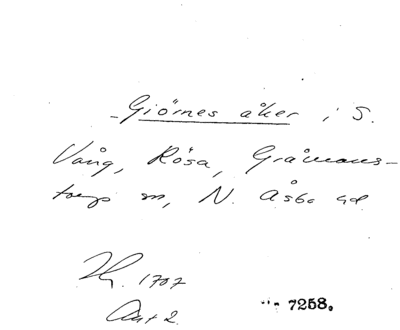 Giörnes åker i S.
Vång, Rösa, Gråmans-
torps sn, N. Åsbo hd.
1707
Akt 2.
7258.